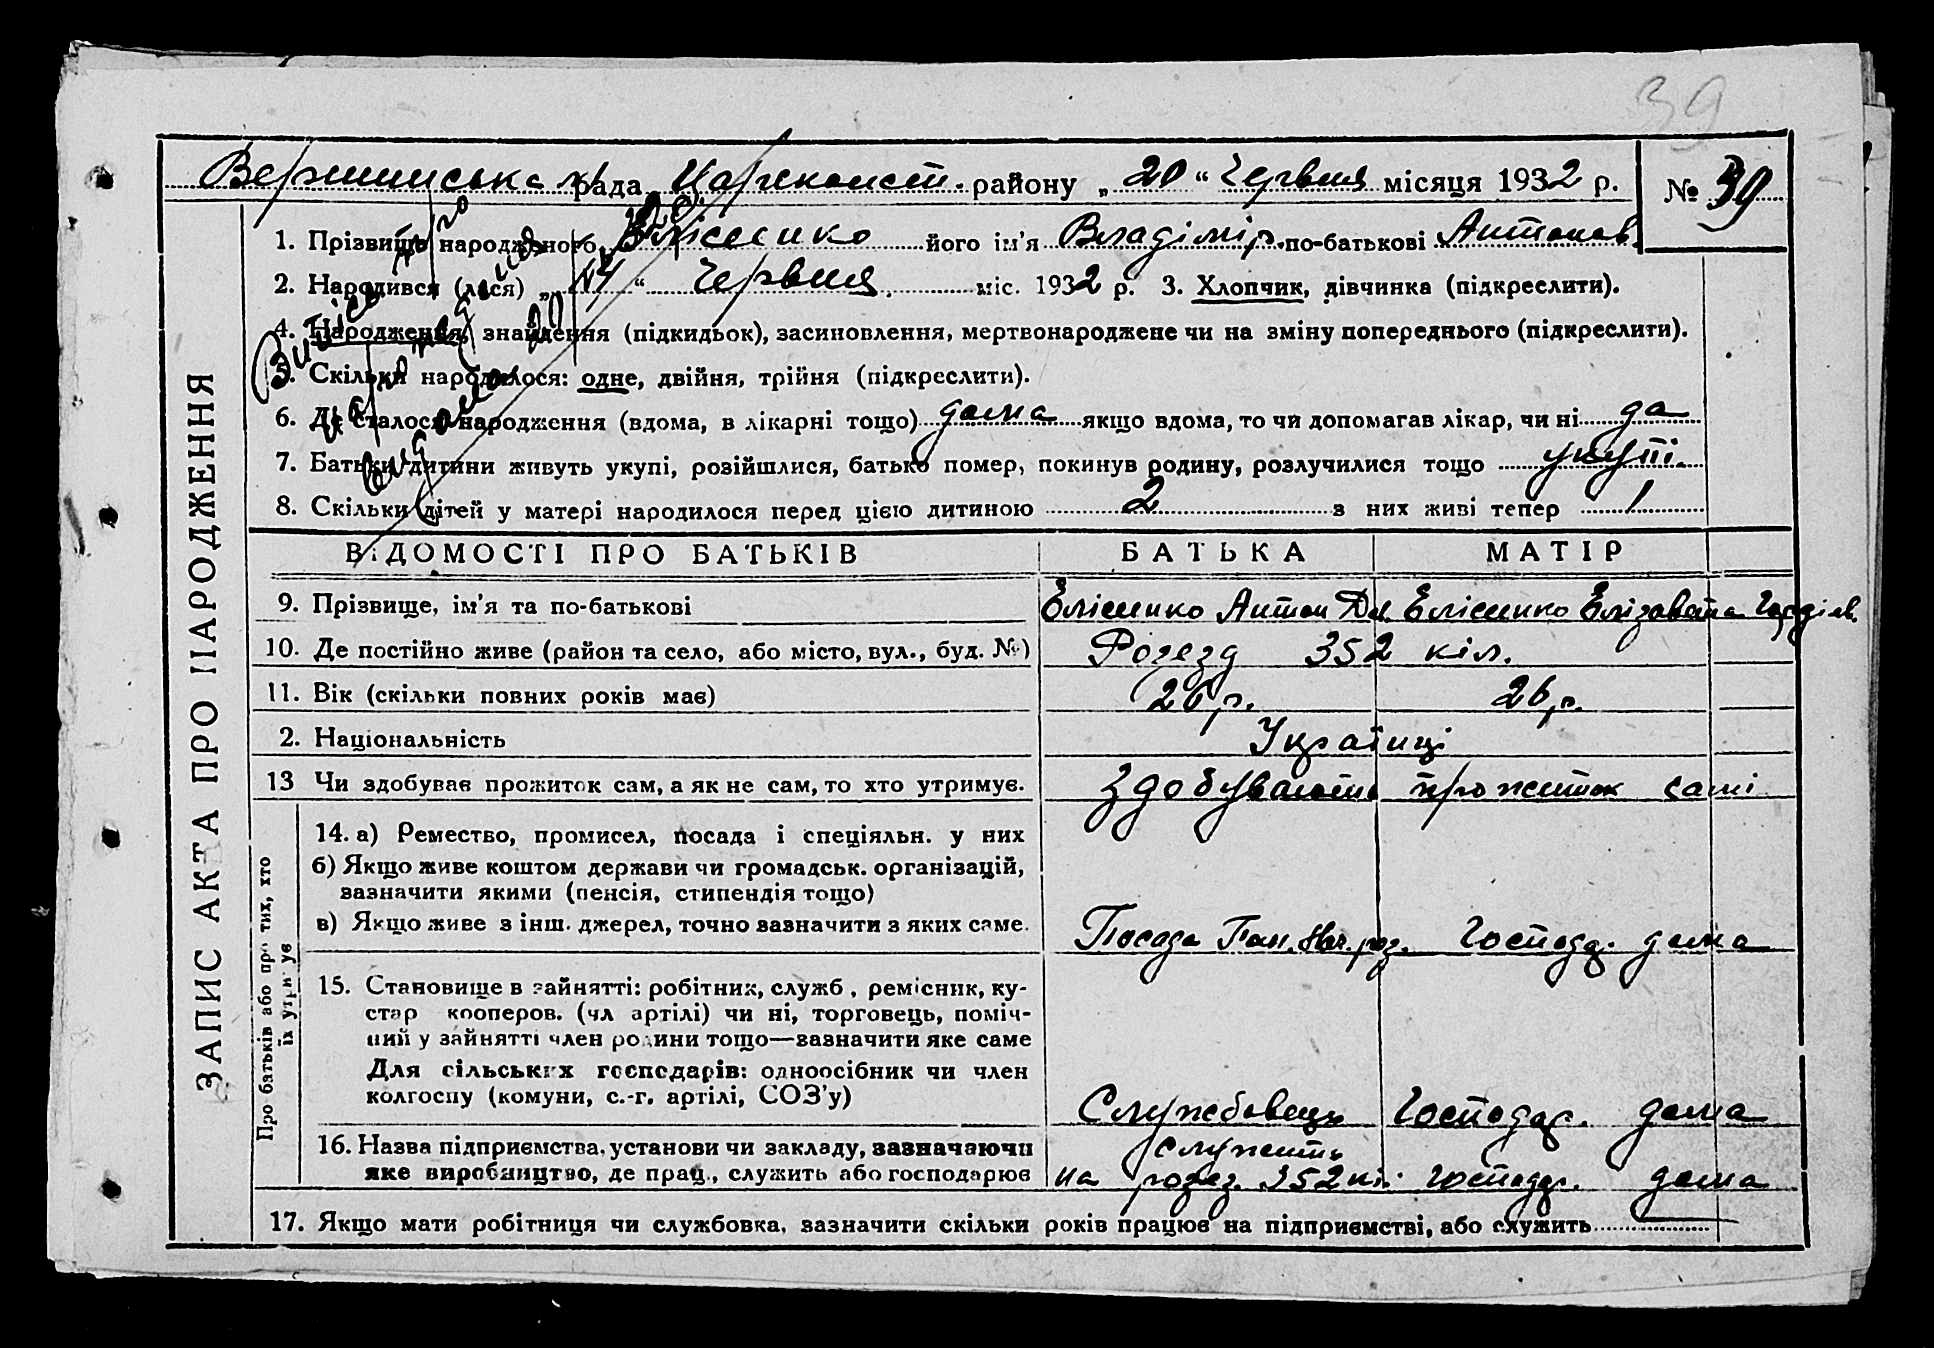 39
Вершинська рада Царекопст. району „20“ Червня місяця 1932 р. № 39
1. Прізвище народженого Єлісенко його ім'я Владімір. по-батькові Антонов.
2. Народився (лася) „14“ Червня міс. 1932 р. 3. Хлопчик, дівчинка (підкреслити).
4. Народження, знайдення (підкидьок), засиновлення, мертвонароджене чи на зміну попереднього (підкреслити).
5. Скільки народилося: одне, двійня, трійня (підкреслити).
6. Де сталося народження (вдома, в лікарні тощо) дома якщо вдома, то чи допомагав лікар, чи ні да
7. Батьки дитини живуть укупі, розійшлися, батько помер, покинув родину, розлучилися тощо укупі.
8. Скільки дітей у матері народилося перед цією дитиною 2 з них живі тепер 1
Витіс про народження видано 20
ЗАПИС АКТА ПРО НАРОДЖЕННЯ
ВІДОМОСТІ ПРО БАТЬКІВ БАТЬКА МАТІР
9. Прізвище, ім'я та по-батькові Єлісенко Антон Дм. Єлісенко Єлізавета Гордієв.
10. Де постійно живе (район та село, або місто, вул., буд. №) Розєзд 352 кіл.
11. Вік (скільки повних років має) 26 р. 26 р.
2. Національність Українці
13 Чи здобуває прожиток сам, а як не сам, то хто утримує. Здобувають прожиток самі
Про батьків або про тих, хто їх утримує
14. а) Ремество, промисел, посада і спеціяльн. у них
б) Якщо живе коштом держави чи громадськ. організацій,
зазначити якими (пенсія, стипендія тощо)
в) Якщо живе з інш. джерел, точно зазначити з яких саме. Посада роз. Господ. дома
15. Становище в зайнятті: робітник, служб., ремісник, ку-
стар кооперов. (чл артілі) чи ні, торговець, поміч-
ний у зайнятті член родини тощо—зазначити яке саме
Для сільських господарів: одноосібник чи член
колгоспу (комуни, с.-г. артілі, СОЗ'у) Службовець Господар. дома
16. Назва підприємства, установи чи закладу, зазначаючи служить
яке виробництво, де прац., служить або господарює на розєз. 352 кі. Господар. дома
17. Якщо мати робітниця чи службовка, зазначити скільки років працює на підприємстві, або служить